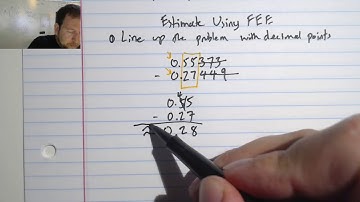 Estimate Using FEE
① Line up the problem with decimal points
0.55373
- 0.27449
0.55
- 0.27
≈ 0.28